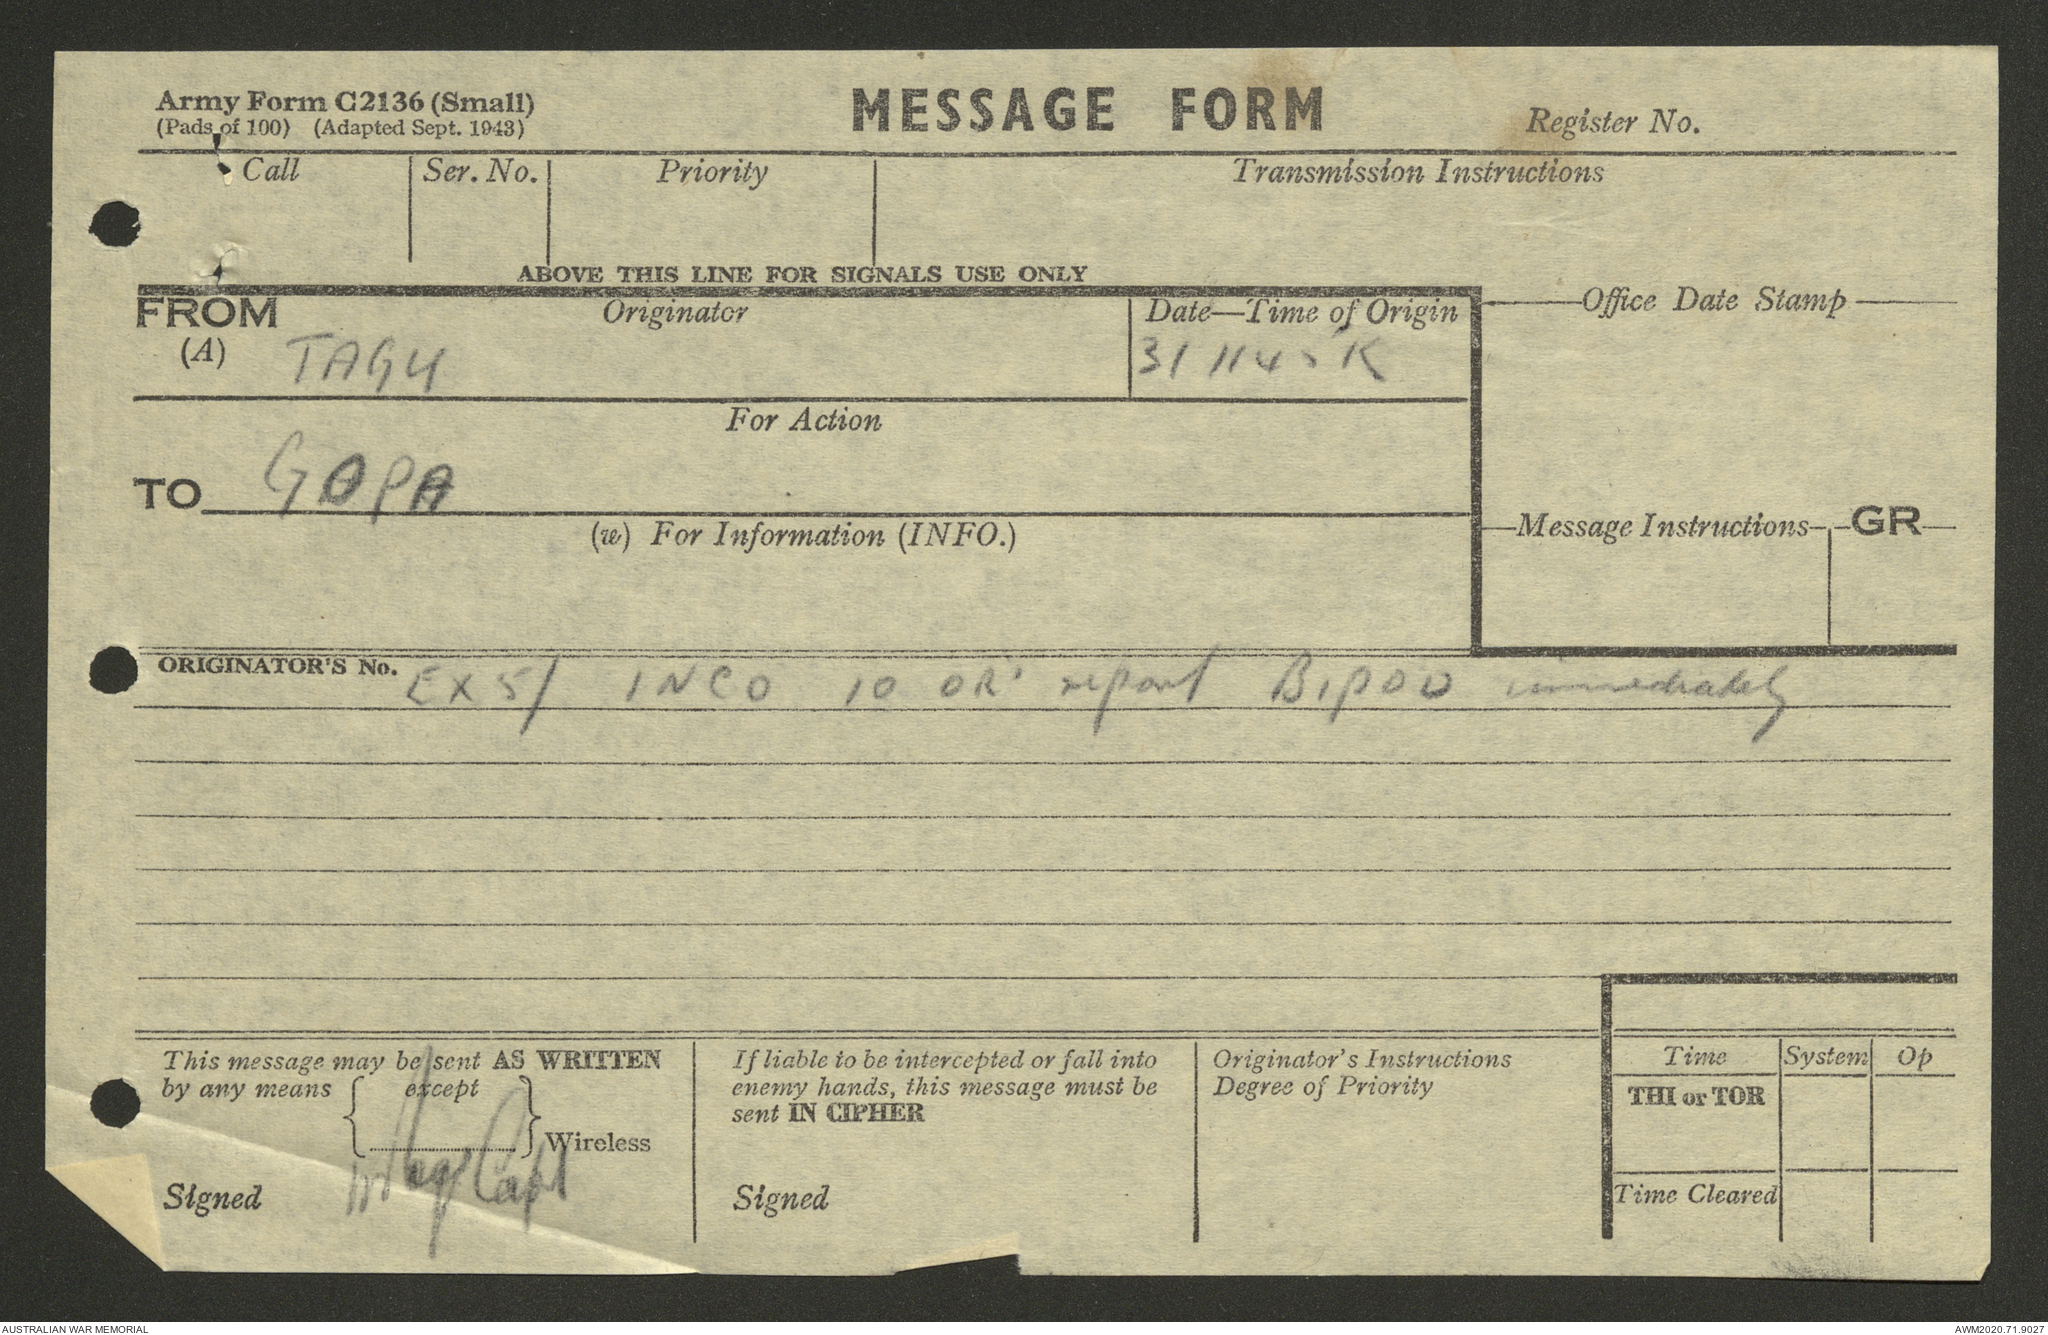 Army Form C2136 (Small)
(Pads of 100) (Adapted Sept. 1943)
MESSAGE FORM
Register No.
Call
Ser. No.
Priority
Transmission Instructions
ABOVE THIS LINE FOR SIGNALS USE ONLY
FROM
(A)
Originator
TAGU
Date—Time of Origin
31 1145 K
Office Date Stamp
For Action
TO
GOPA
(w) For Information (INFO.)
Message Instructions
GR
ORIGINATOR'S No. EX51 INCO 10 OR' report BIPOD immediately
This message may be sent AS WRITTEN
by any means { except
} Wireless
Signed Capt
If liable to be intercepted or fall into
enemy hands, this message must be
sent IN CIPHER
Signed
Originator's Instructions
Degree of Priority
Time
System
Op
THI or TOR
Time Cleared
AUSTRALIAN WAR MEMORIAL
AWM2020.71.9027